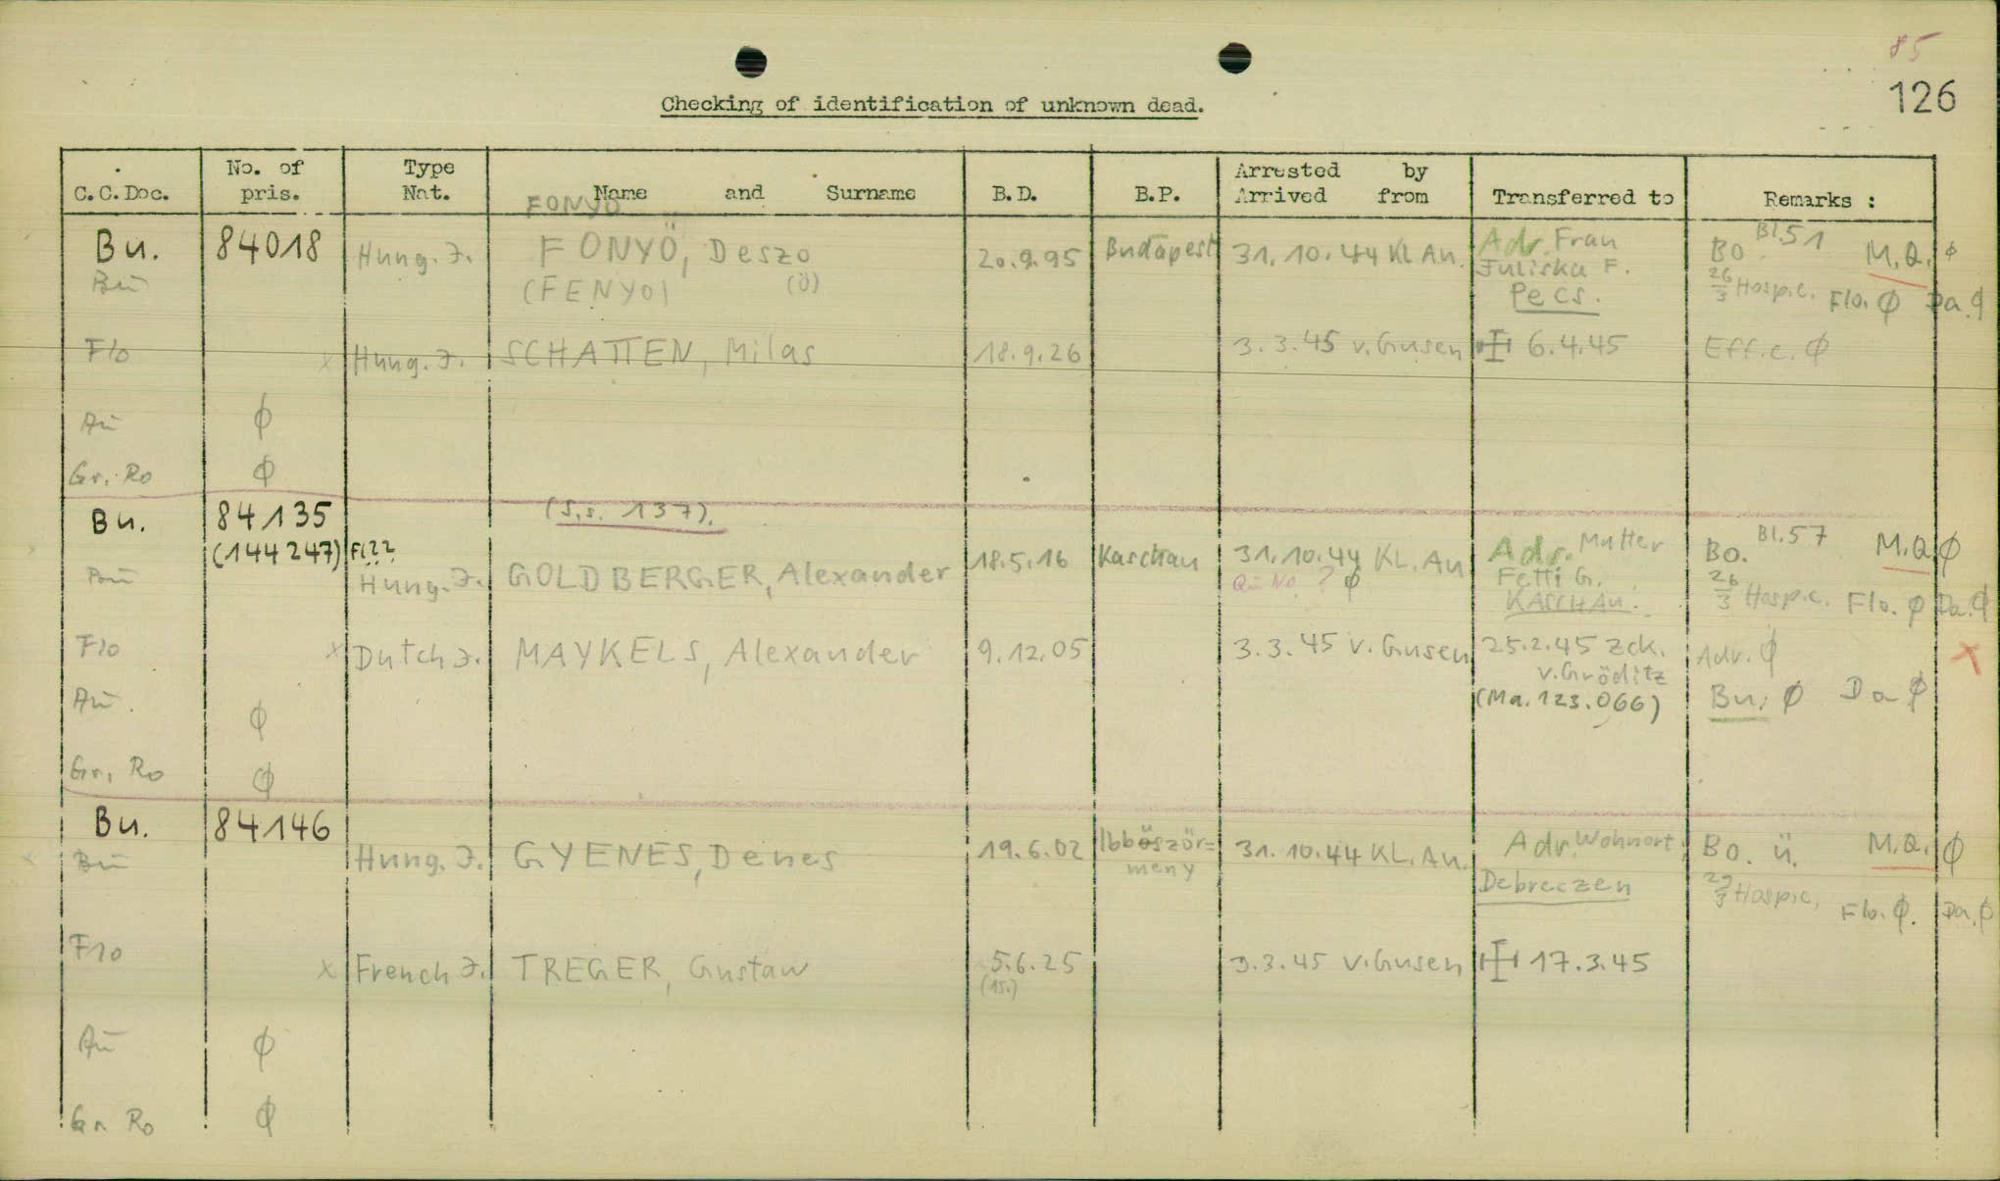 85
126
Checking of identification of unknown dead.
C.C.Doc. No. of pris. Type Nat. Name and Surname B.D. B.P. Arrested by Arrived from Transferred to Remarks :
FONYÖ
Bu. 84018 Hung. J. FONYÖ, Deszo 20.9.95 Budapest 31.10.44 KL Au. Adr. Frau Bo Bl.51 M.Q. ø
Bu (FENYO) (Ö) Juliska F. 26/3 Hosp.c. Flo. ø Da. ø
Pecs.
Flo x Hung. J. SCHATTEN, Milas 18.9.26 3.3.45 v. Gusen 6.4.45 Eff.c. ø
Au ø
Gr. Ro ø
Bu. 84135 (S.s. 137).
(144247) Fl?? 18.5.16 Kaschau 31.10.44 KL. Au Adr. Mutter Bo. Bl.57 M.Q. ø
Hung. J. GOLDBERGER, Alexander No. ? ø Fetti G. 26/3 Hosp.c. Flo. ø Da. ø
KASCHAU.
Flo x Dutch J. MAYKELS, Alexander 9.12.05 3.3.45 v. Gusen 25.2.45 zck. Adr. ø x
v. Gröditz
Au. ø (Ma. 123.066) Bu, ø Da ø
Gr. Ro ø
Bu. 84146
Bu Hung. J. GYENES, Denes 19.6.02 böször= 31.10.44 KL. Au. Adr. Wohnort Bo. ü. M.Q. ø
meny Debreczen Hosp.c. Flo. ø. Da. ø
Flo x French J. TREGER, Gustaw 5.6.25 3.3.45 v. Gusen 17.3.45
(15.)
Au ø
Gr. Ro ø